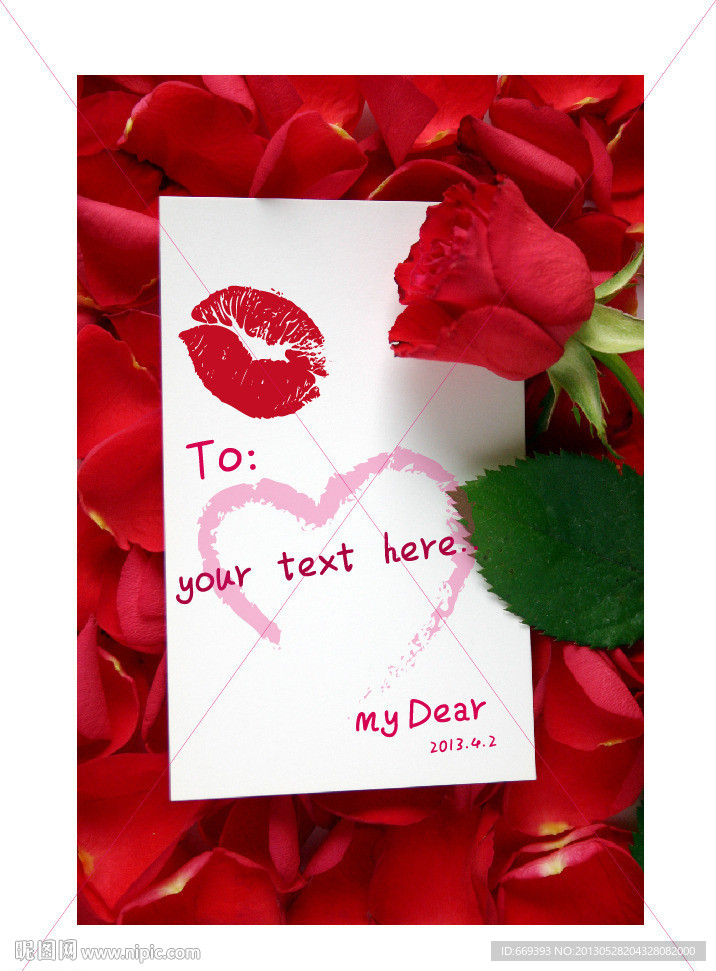 To:
your text here.
my Dear
2013.4.2
昵图网 www.nipic.com
ID:669393 NO:20130528204328082000